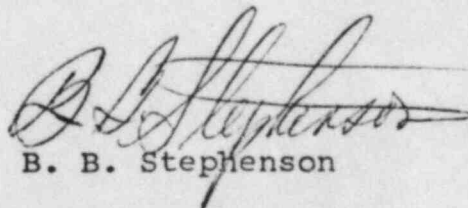 B B Stephenson
B. B. Stephenson